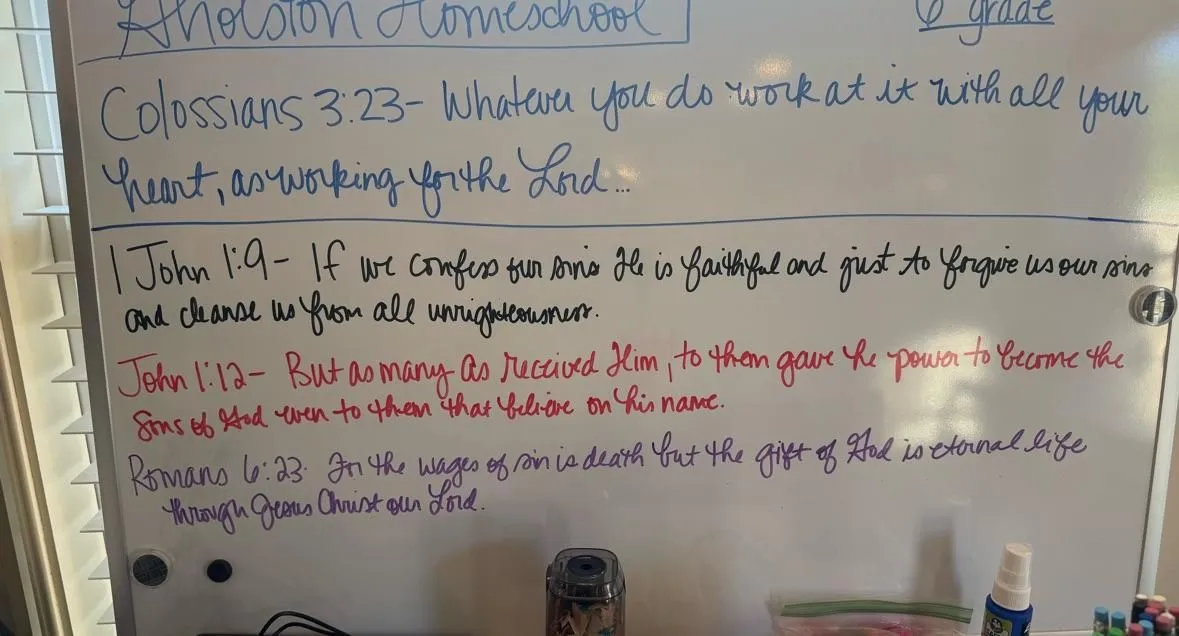 Homeschool
6 grade
Colossians 3:23- Whatever you do work at it with all your
heart, as working for the Lord...
1 John 1:9- If we confess our sins He is faithful and just to forgive us our sins
and cleanse us from all unrighteousness.
John 1:12- But as many as received Him, to them gave he power to become the
Sons of God even to them that believe on his name.
Romans 6:23. For the wages of sin is death but the gift of God is eternal life
through Jesus Christ our Lord.